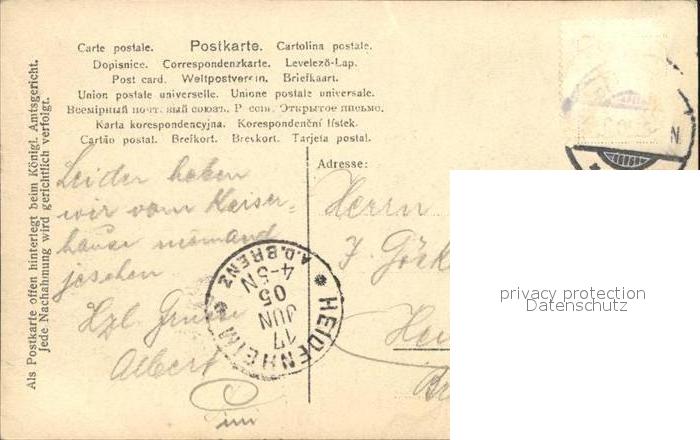 Carte postale. Postkarte. Cartolina postale.
Dopisnice. Correspondenzkarte. Levelező-Lap.
Post card. Weltpostverein. Briefkaart.
Union postale universelle. Unione postale universale.
Всемірный почт. вый союзъ. Р ссія. Открытое письмо.
Karta korespondencyjna. Korespondenční lístek.
Cartão postal. Brefkort. Brevkort. Tarjeta postal.
Als Postkarte offen hinterlegt beim Königl. Amtsgericht.
Jede Nachahmung wird gerichtlich verfolgt.
Leider haben
wir vom Keiser=
hause niemand
jesehen
Hzl. Grüsse
Albert
HEIDENHEIM
A.D.BRENZ
17
JUN
05
4-5N
Adresse:
Herrn
J. Göck
Hei
N
privacy protection
Datenschutz